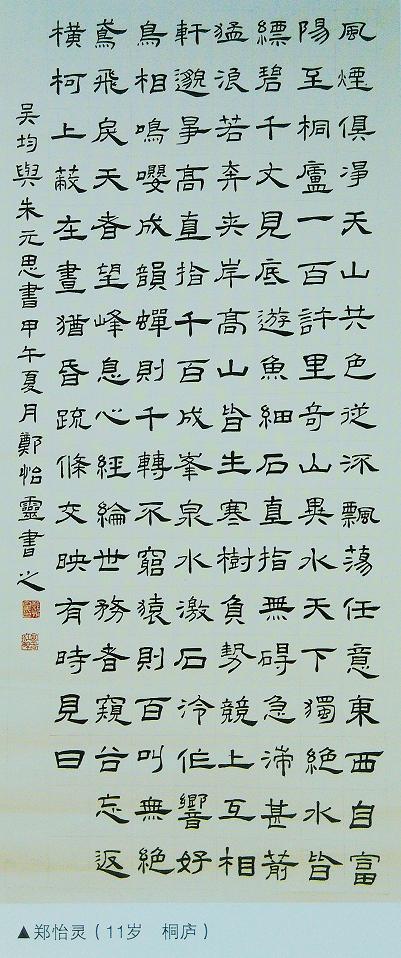 風煙俱淨天山共色從流飄蕩任意東西自富
陽至桐廬一百許里奇山異水天下獨絕水皆
縹碧千丈見底遊魚細石直指無碍急湍甚箭
猛浪若奔夾岸高山皆生寒樹負勢競上互相
軒邈爭高直指千百成峯泉水激石泠作響好
鳥相鳴嚶成韻蟬則千轉不窮猿則百叫無絕
鳶飛戾天者望峰息心經綸世務者窺谷忘返
橫柯上蔽在晝猶昏疏條交映有時見日
吴均與朱元思書甲午夏月鄭怡靈書之
▲郑怡灵（11岁　桐庐）